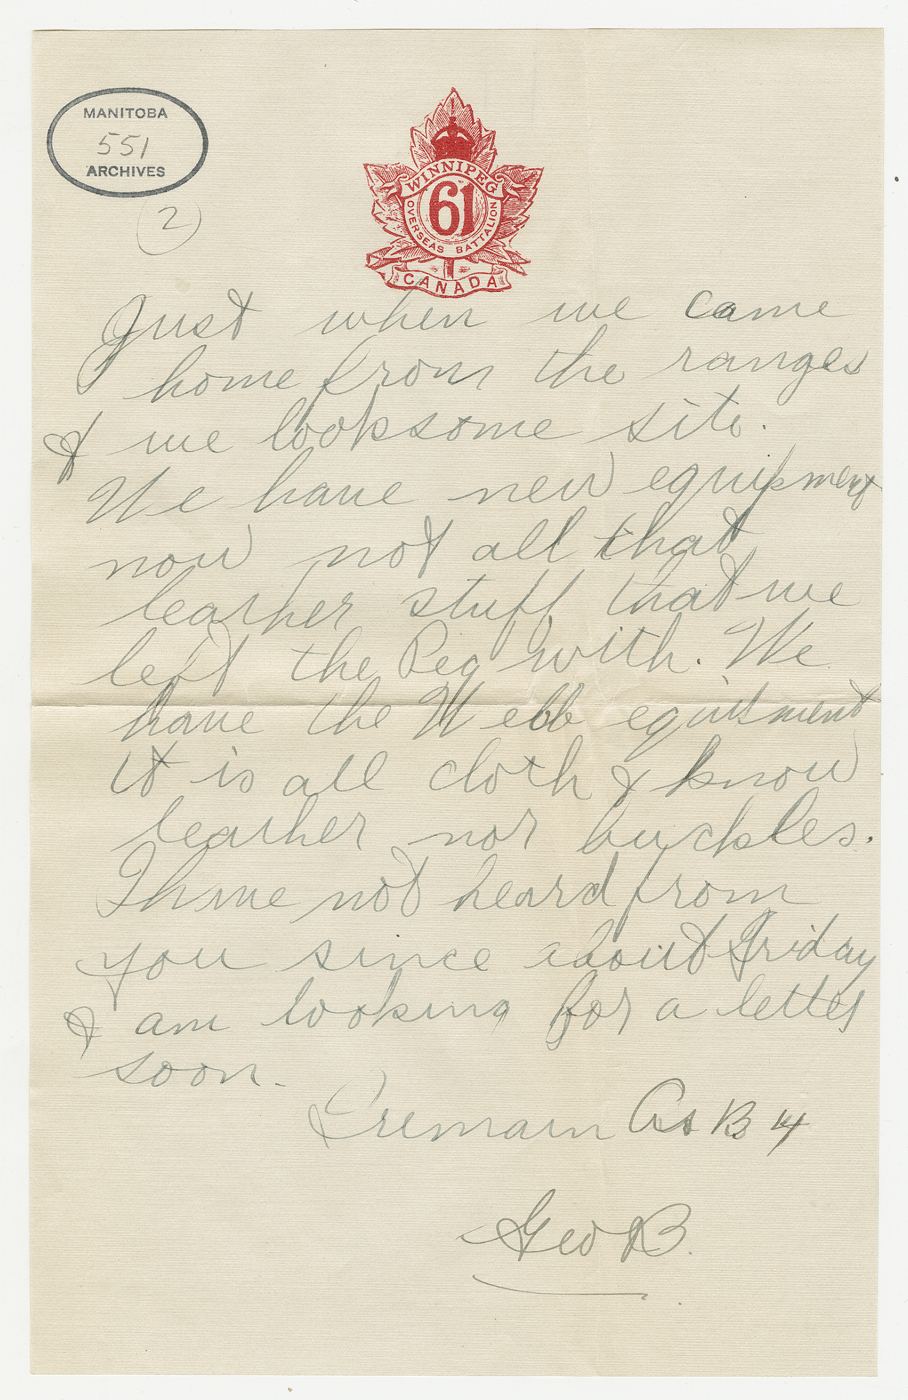 MANITOBA
551
ARCHIVES
2
WINNIPEG
61
OVERSEAS BATTALION
CANADA
Just when we came
home from the ranges
& we looksome site.
We have new equipment
now not all that
leather stuff that we
left the Peg with. We
have the Webb equitment
It is all cloth & know
leather nor buckles.
I have not heard from
you since about Friday
& am looking for a letter
soon.
I remain As B 4
Geo B.